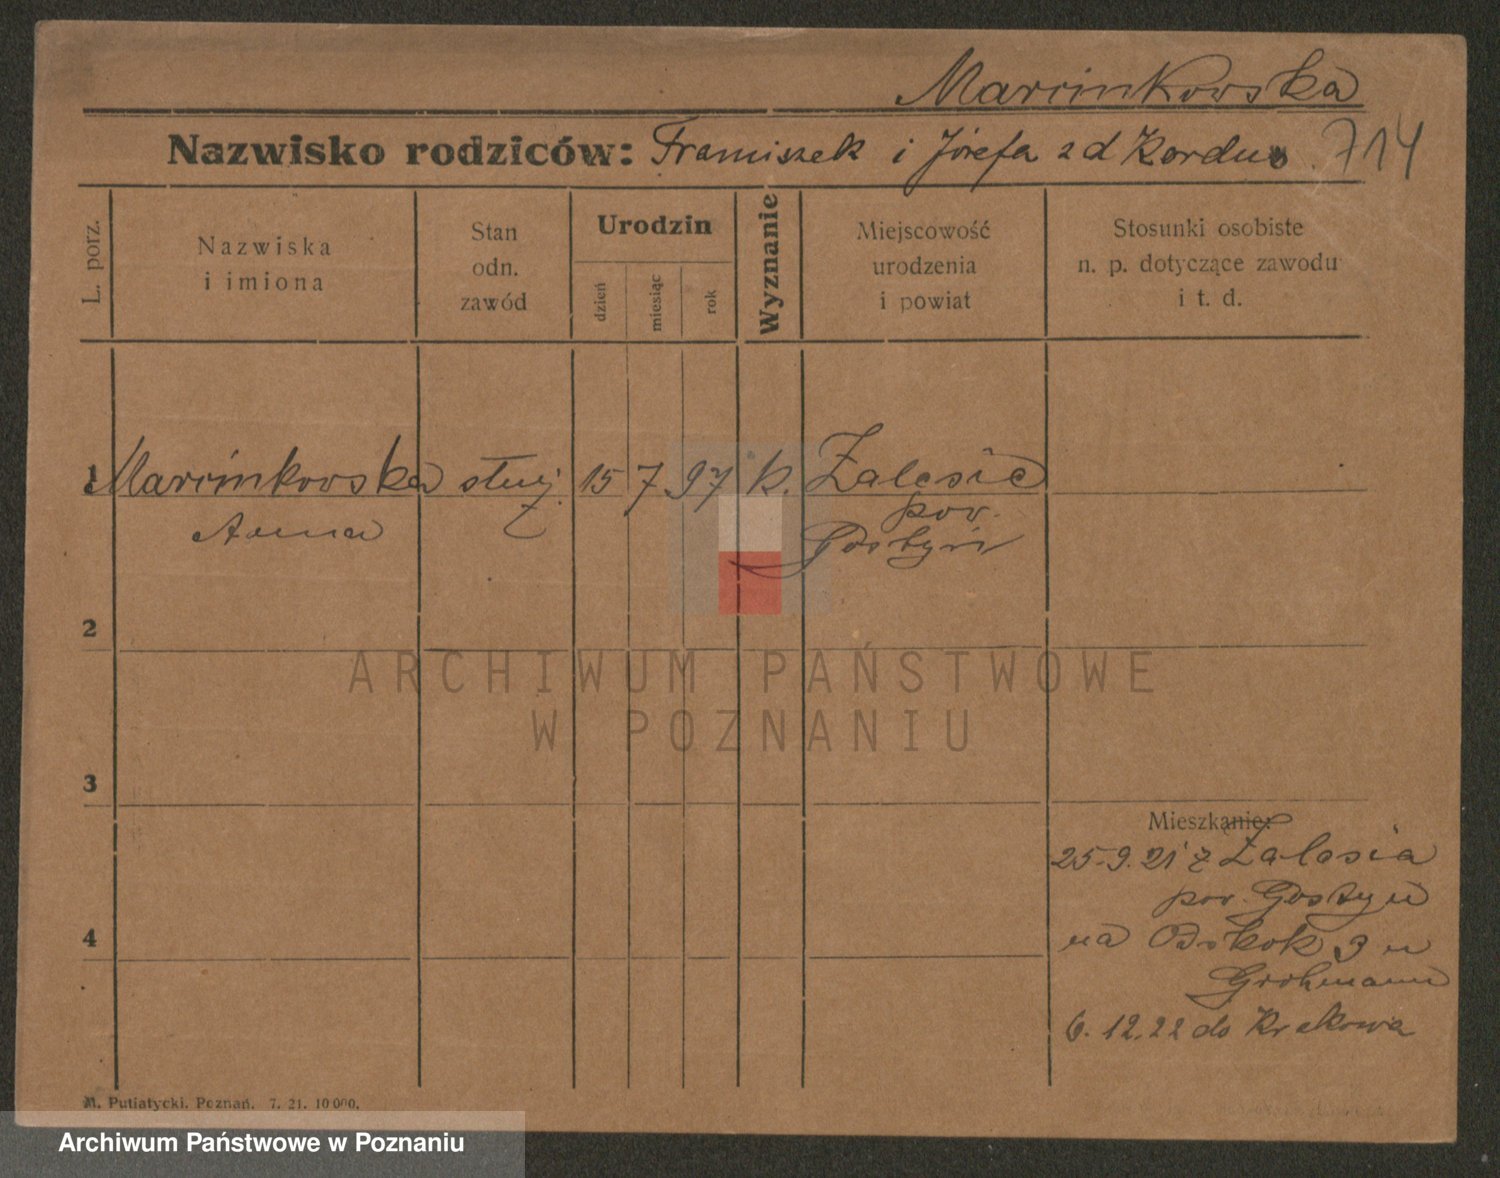 Marcinkowska
Nazwisko rodziców: Franciszek i Józefa z d Kordus 714
L. porz.
Nazwiska
i imiona
Stan
odn.
zawód
Urodzin
dzień
miesiąc
rok
Wyznanie
Miejscowość
urodzenia
i powiat
Stosunki osobiste
n. p. dotyczące zawodu
i t. d.
1 Marcinkowska służ. 15 7 97 k. Zalesie
Anna
pow.
Gostyń
2
ARCHIWUM PAŃSTWOWE
W POZNANIU
3
Mieszkanie:
25.9.21 z Zalesia
pow. Gostyń
4
na Oskok 3 u
6.12.22 do Krakowa
M. Putiatycki, Poznań. 7. 21. 10 000.
Archiwum Państwowe w Poznaniu